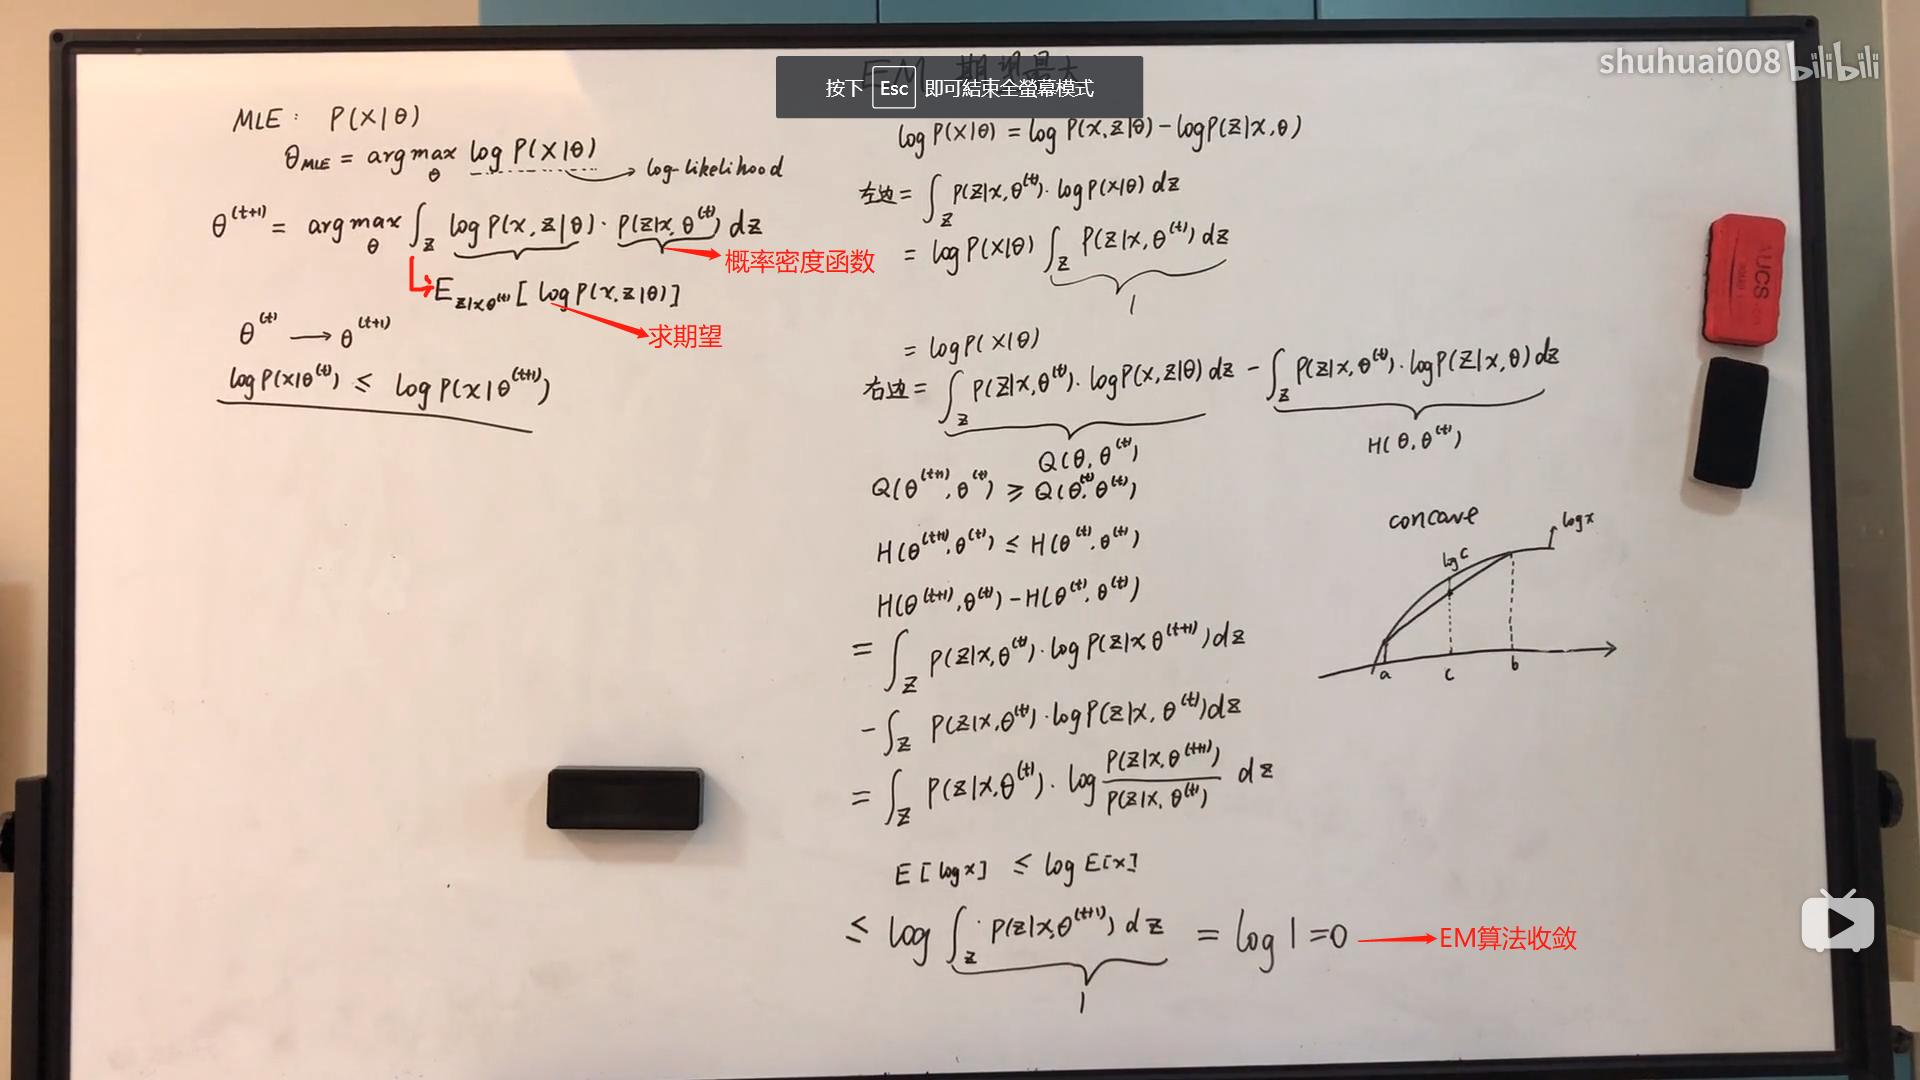 shuhuai008 bilibili
EM 期望最大
按下 Esc 即可結束全螢幕模式
MLE: P(X|θ)
θ_MLE = argmax_θ log P(X|θ) → log-likelihood
θ^(t+1) = argmax_θ ∫_Z log P(x,z|θ) · P(z|x,θ^(t)) dz
概率密度函数
E_z|x,θ^(t) [log P(x,z|θ)]
求期望
θ^(t) → θ^(t+1)
log P(x|θ^(t)) ≤ log P(x|θ^(t+1))
log P(X|θ) = log P(x,z|θ) - log P(z|x,θ)
左边 = ∫_Z P(z|x,θ^(t)) · log P(x|θ) dz
= log P(X|θ) ∫_Z P(z|x,θ^(t)) dz
1
= log P(X|θ)
右边 = ∫_Z P(z|x,θ^(t)) · log P(x,z|θ) dz - ∫_Z P(z|x,θ^(t)) · log P(z|x,θ) dz
Q(θ,θ^(t))
H(θ,θ^(t))
Q(θ^(t+1),θ^(t)) ≥ Q(θ^(t),θ^(t))
H(θ^(t+1),θ^(t)) ≤ H(θ^(t),θ^(t))
H(θ^(t+1),θ^(t)) - H(θ^(t),θ^(t))
= ∫_Z P(z|x,θ^(t)) · log P(z|x,θ^(t+1)) dz
- ∫_Z P(z|x,θ^(t)) · log P(z|x,θ^(t)) dz
= ∫_Z P(z|x,θ^(t)) · log P(z|x,θ^(t+1)) / P(z|x,θ^(t)) dz
E[log x] ≤ log E[x]
≤ log ∫_Z P(z|x,θ^(t+1)) dz = log 1 = 0 → EM算法收敛
1
concave
log x
log c
a c b
AUCS